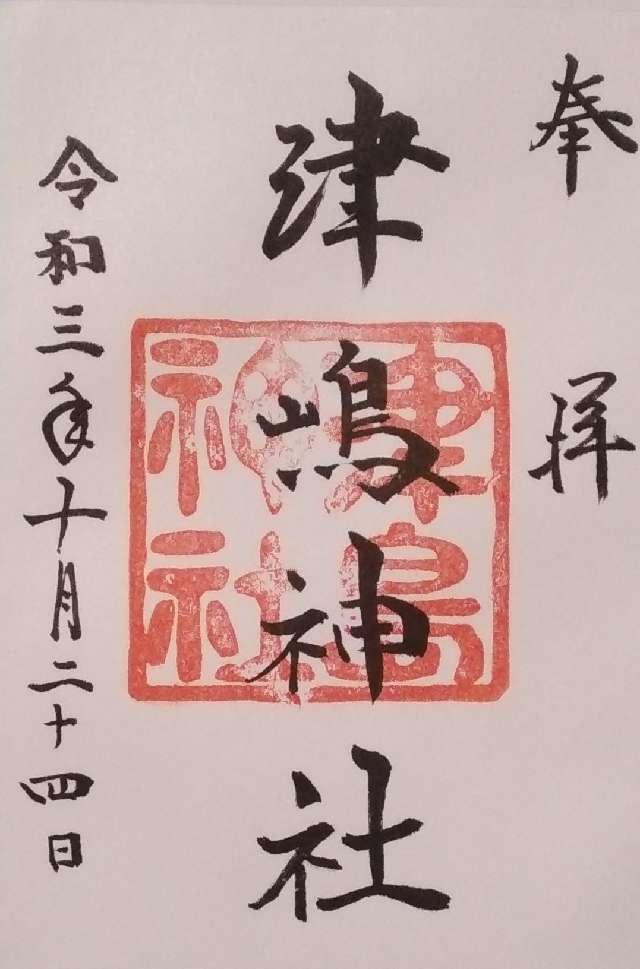 奉拝
津嶋神社
津島
神社
令和三年十月二十四日